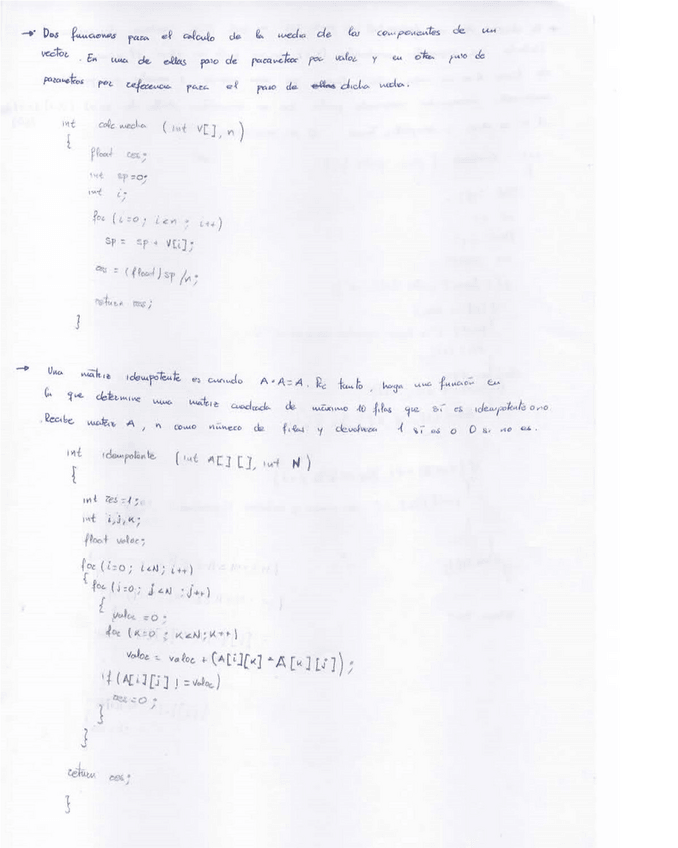 → Dos funciones para el calculo de la media de las componentes de un
vector. En una de ellas paso de parametros por valor y en otra paso de
parametros por referencia para el paso de ellas dicha media.
int calc media (int V[], n)
{
float res;
int sp=0;
int i;
for (i=0; i<n; i++)
sp = sp + V[i];
res = (float) sp/n;
return res;
}
→ Una matriz idempotente es cuando A·A=A. Po tanto, haga una función en
la que determine una matriz cuadrada de máximo 10 filas que si es idempotente o no
. Recibe matriz A, n como número de filas y devolverá 1 si es o 0 si no es.
int idempotente (int A[][], int N)
{
int res=1;
int i,j,k;
float valor;
for (i=0; i<N; i++)
{ for (j=0; j<N; j++)
{
valor =0;
for (k=0; k<N; k++)
valor = valor + (A[i][k] * A[k][j]);
if (A[i][j] != valor)
res=0;
}
}
return res;
}